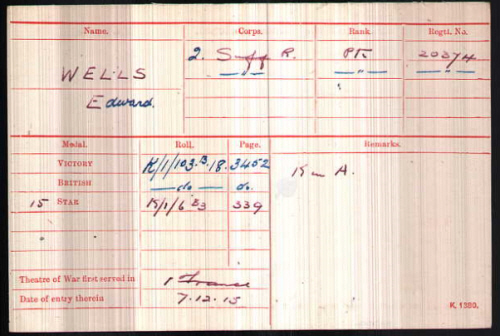 Name. Corps. Rank. Regtl. No.
WELLS 2. Suff R. Pte 20374
Edward.
Medal. Roll. Page. Remarks.
VICTORY K/1/103.B.18. 3452 K in A.
BRITISH do do.
15 STAR K/1/6 B3 339
Theatre of War first served in 1 France
Date of entry therein 7.12.15
K. 1380.